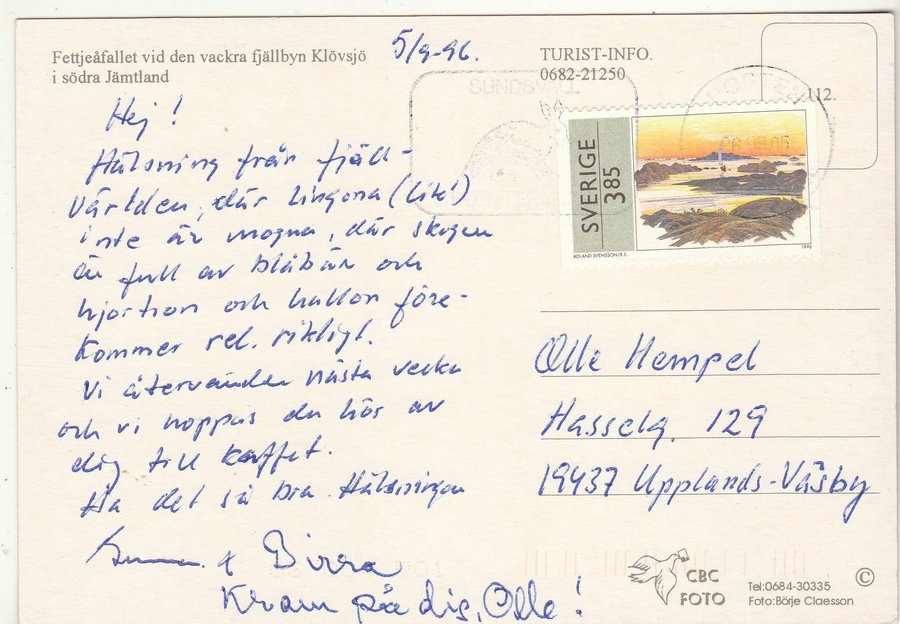 Fettjeåfallet vid den vackra fjällbyn Klövsjö
i södra Jämtland
5/9-96.
TURIST-INFO.
0682-21250
112.
SUNDSVALL
POSTEN
SVERIGE
385
ROLAND SVENSSON/R.E.
1996
Hej!
Hälsning från fjäll-
världen, där lingona (lite!)
inte är mogna, där skogen
är full av blåbär och
hjortron och hallon före-
kommer rel. rikligt.
Vi återvänder nästa vecka
och vi hoppas du hör av
dig till kaffet.
Ha det så bra. Hälsningen
& Birra
Kram på dig, Olle!
Olle Hempel
Hasselg. 129
19437 Upplands-Väsby
CBC
FOTO
Tel:0684-30335
Foto:Börje Claesson
©